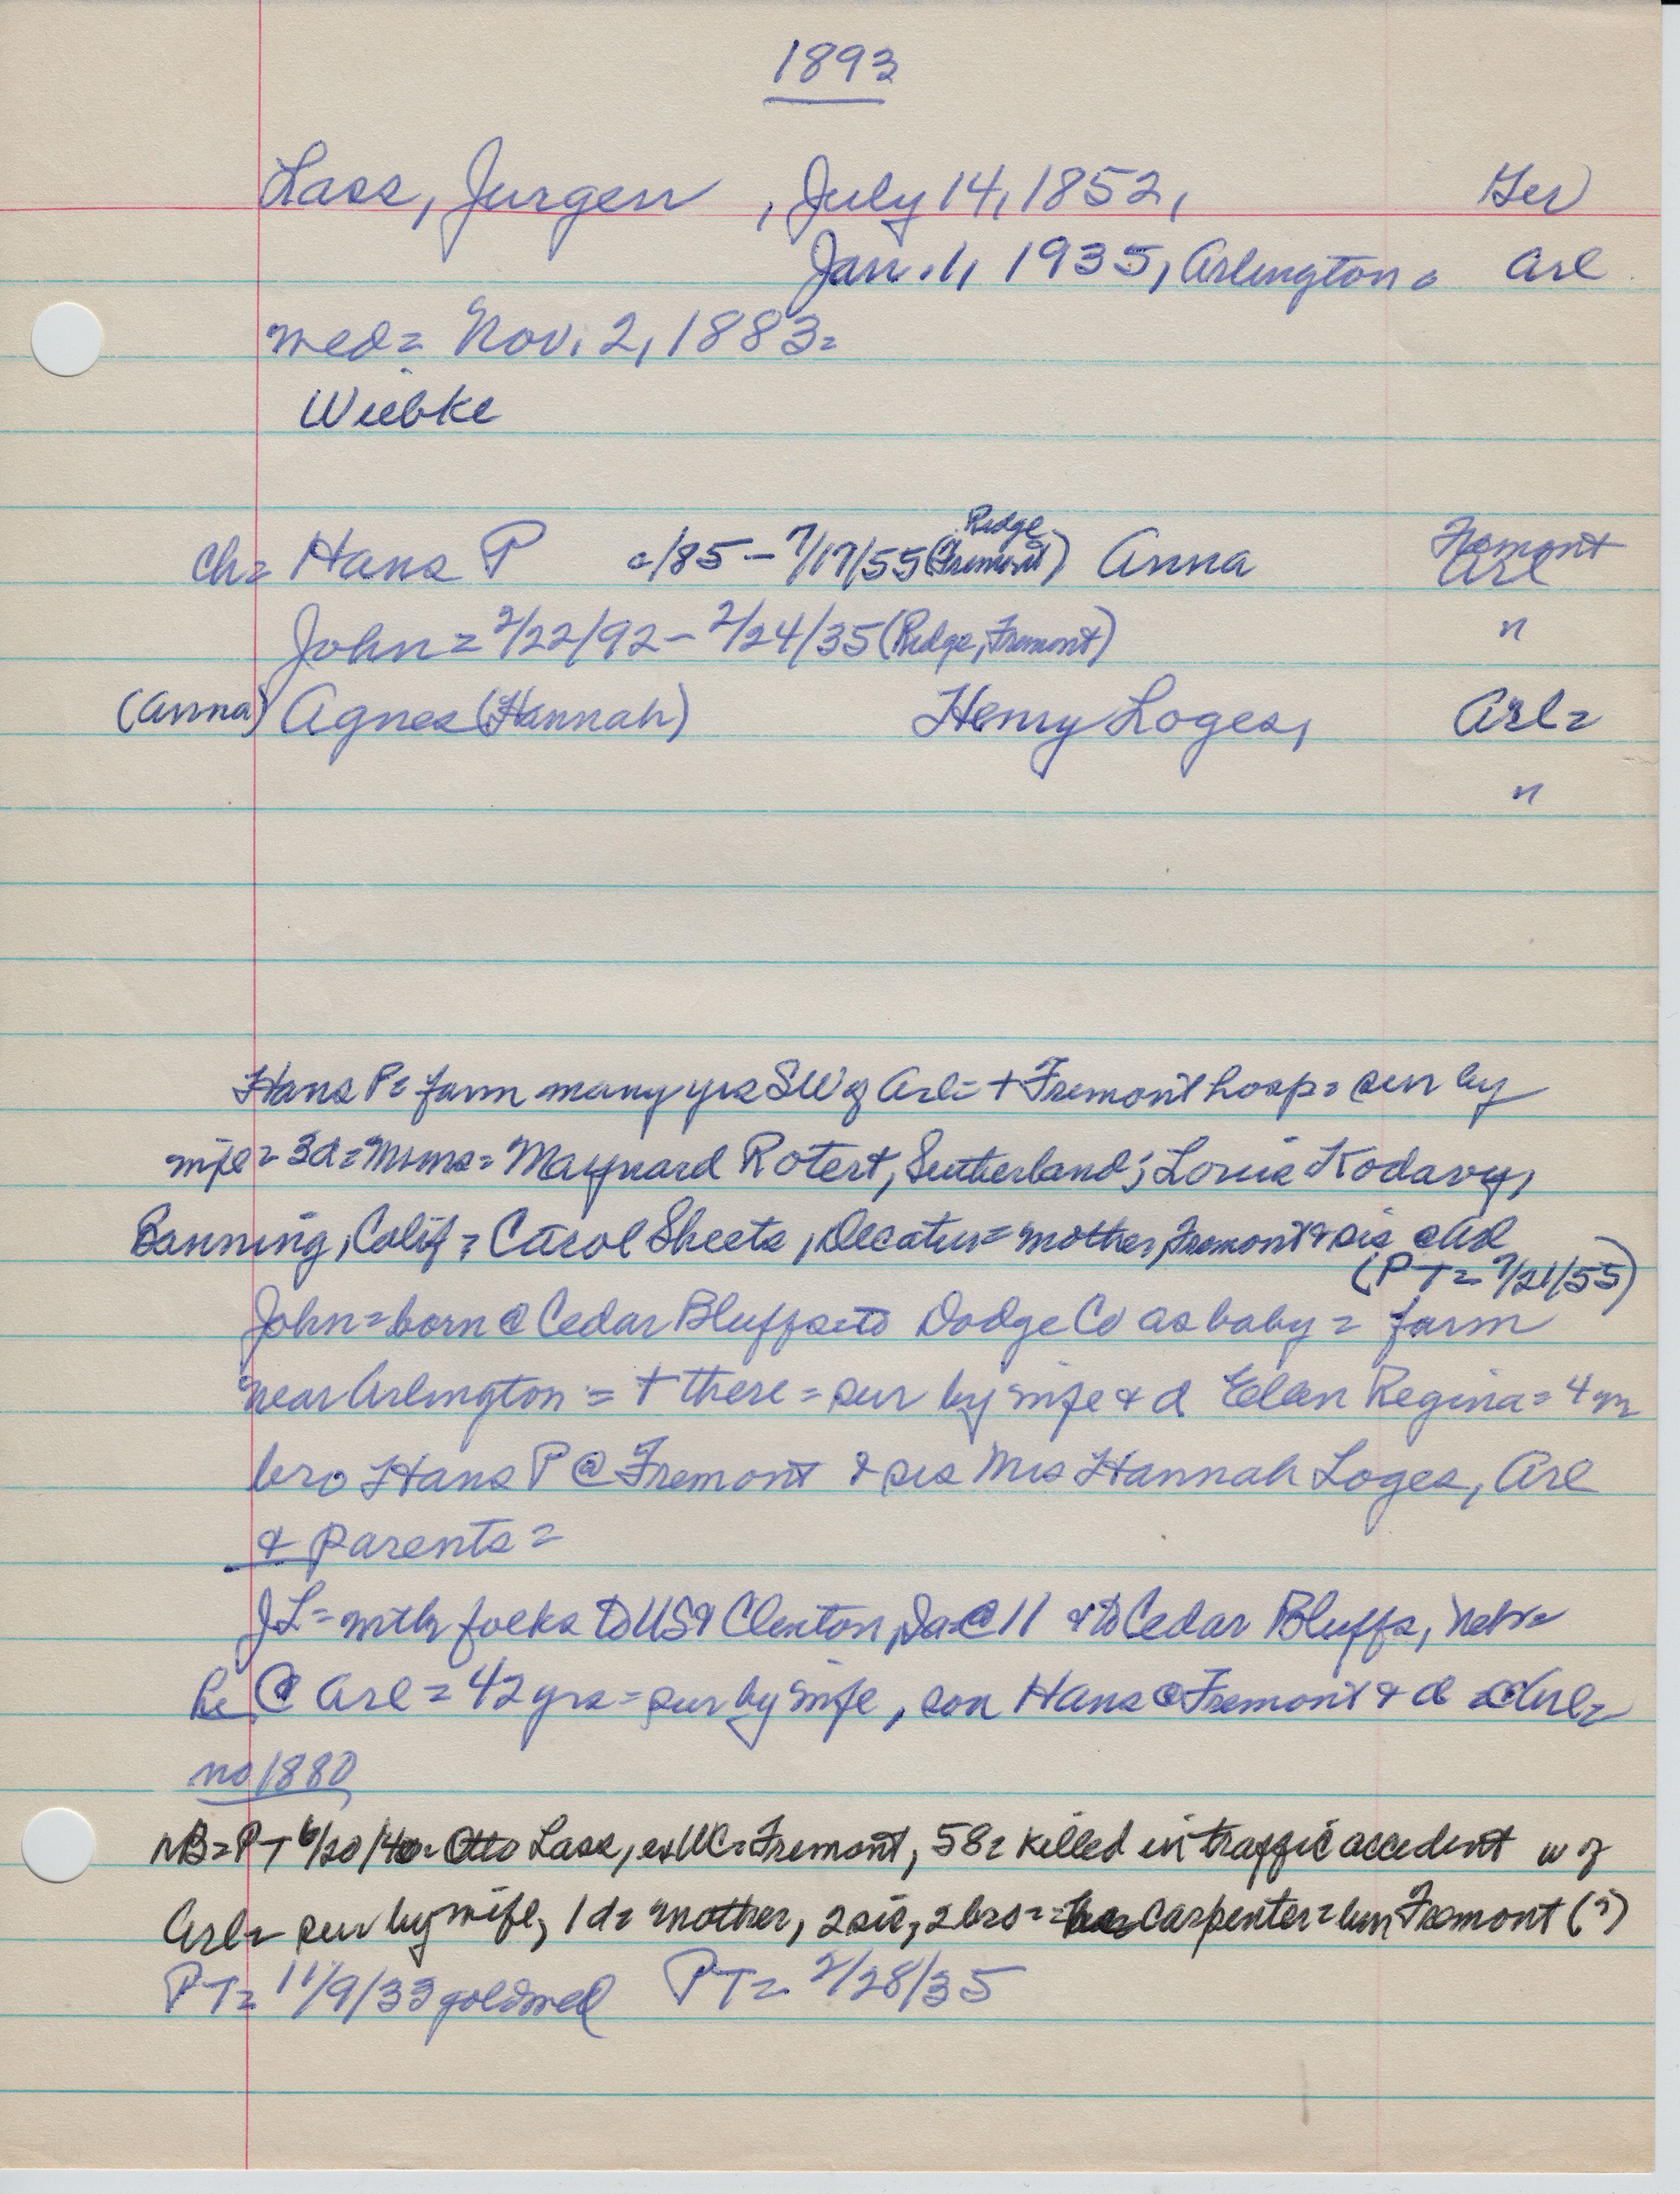 1893
Lass, Jurgen , July 14, 1852, Ger
Jan. 1, 1935, Arlington = Arl
wed = Nov. 2, 1883 =
Wiebke
Ridge
ch = Hans P c/85 - 7/17/55 (Fremont) Anna Fremont Arl
John = 2/22/92 - 2/24/35 (Ridge, Fremont) "
(Anna) Agnes (Hannah) Henry Loges, Arl =
"
Hans P = farm many yrs SW of Arl = + Fremont hosp = sur by
wife = 3d = Mmes = Maynard Rotert, Sutherland; Louis Kodavy,
Banning, Calif = Carol Sheets, Decatur = mother, Fremont & sis @ Arl
(PT = 7/21/55)
John = born @ Cedar Bluffs = to Dodge Co as baby = farm
near Arlington = + there = sur by wife & d Ellen Regina = 4 m
bro Hans P @ Fremont & sis Mrs Hannah Loges, Arl
& parents =
JL = with folks to US & Clinton, Ia @ 11 & to Cedar Bluffs, Neb =
he @ Arl = 42 yrs = sur by wife, son Hans @ Fremont & d @ Arl =
no 1880
NB = PT 6/20/40 = Otto Lass, ex WC = Fremont, 58 = killed in traffic accident w of
Arl = sur by wife, 1 d = mother, 2 sis, 2 bro = carpenter = Fremont (?)
PT = 11/9/33 gold wed PT = 2/28/35